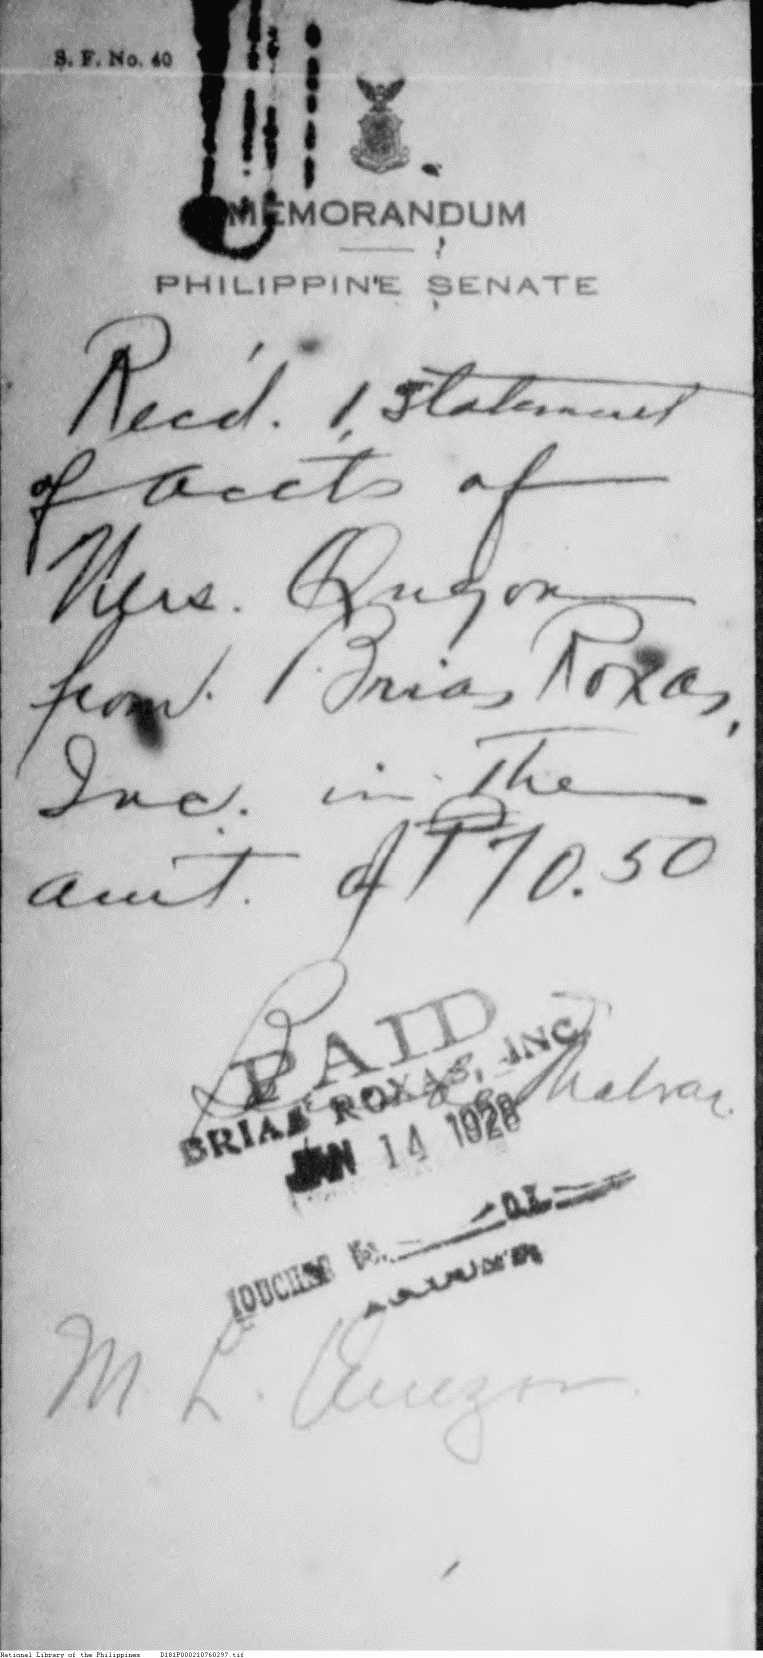 S. F. No. 40
MEMORANDUM
PHILIPPINE SENATE
Rec'd. 1 Statement
of accts of
Mrs. Quezon
from Brias Roxas,
Inc. in the
amt. of ₱70.50
PAID
BRIAS ROXAS, INC.
Malvar
JAN 14 1928
VOUCHER No.
M. L. Quezon
National Library of the Philippines D181P000210760297.tif